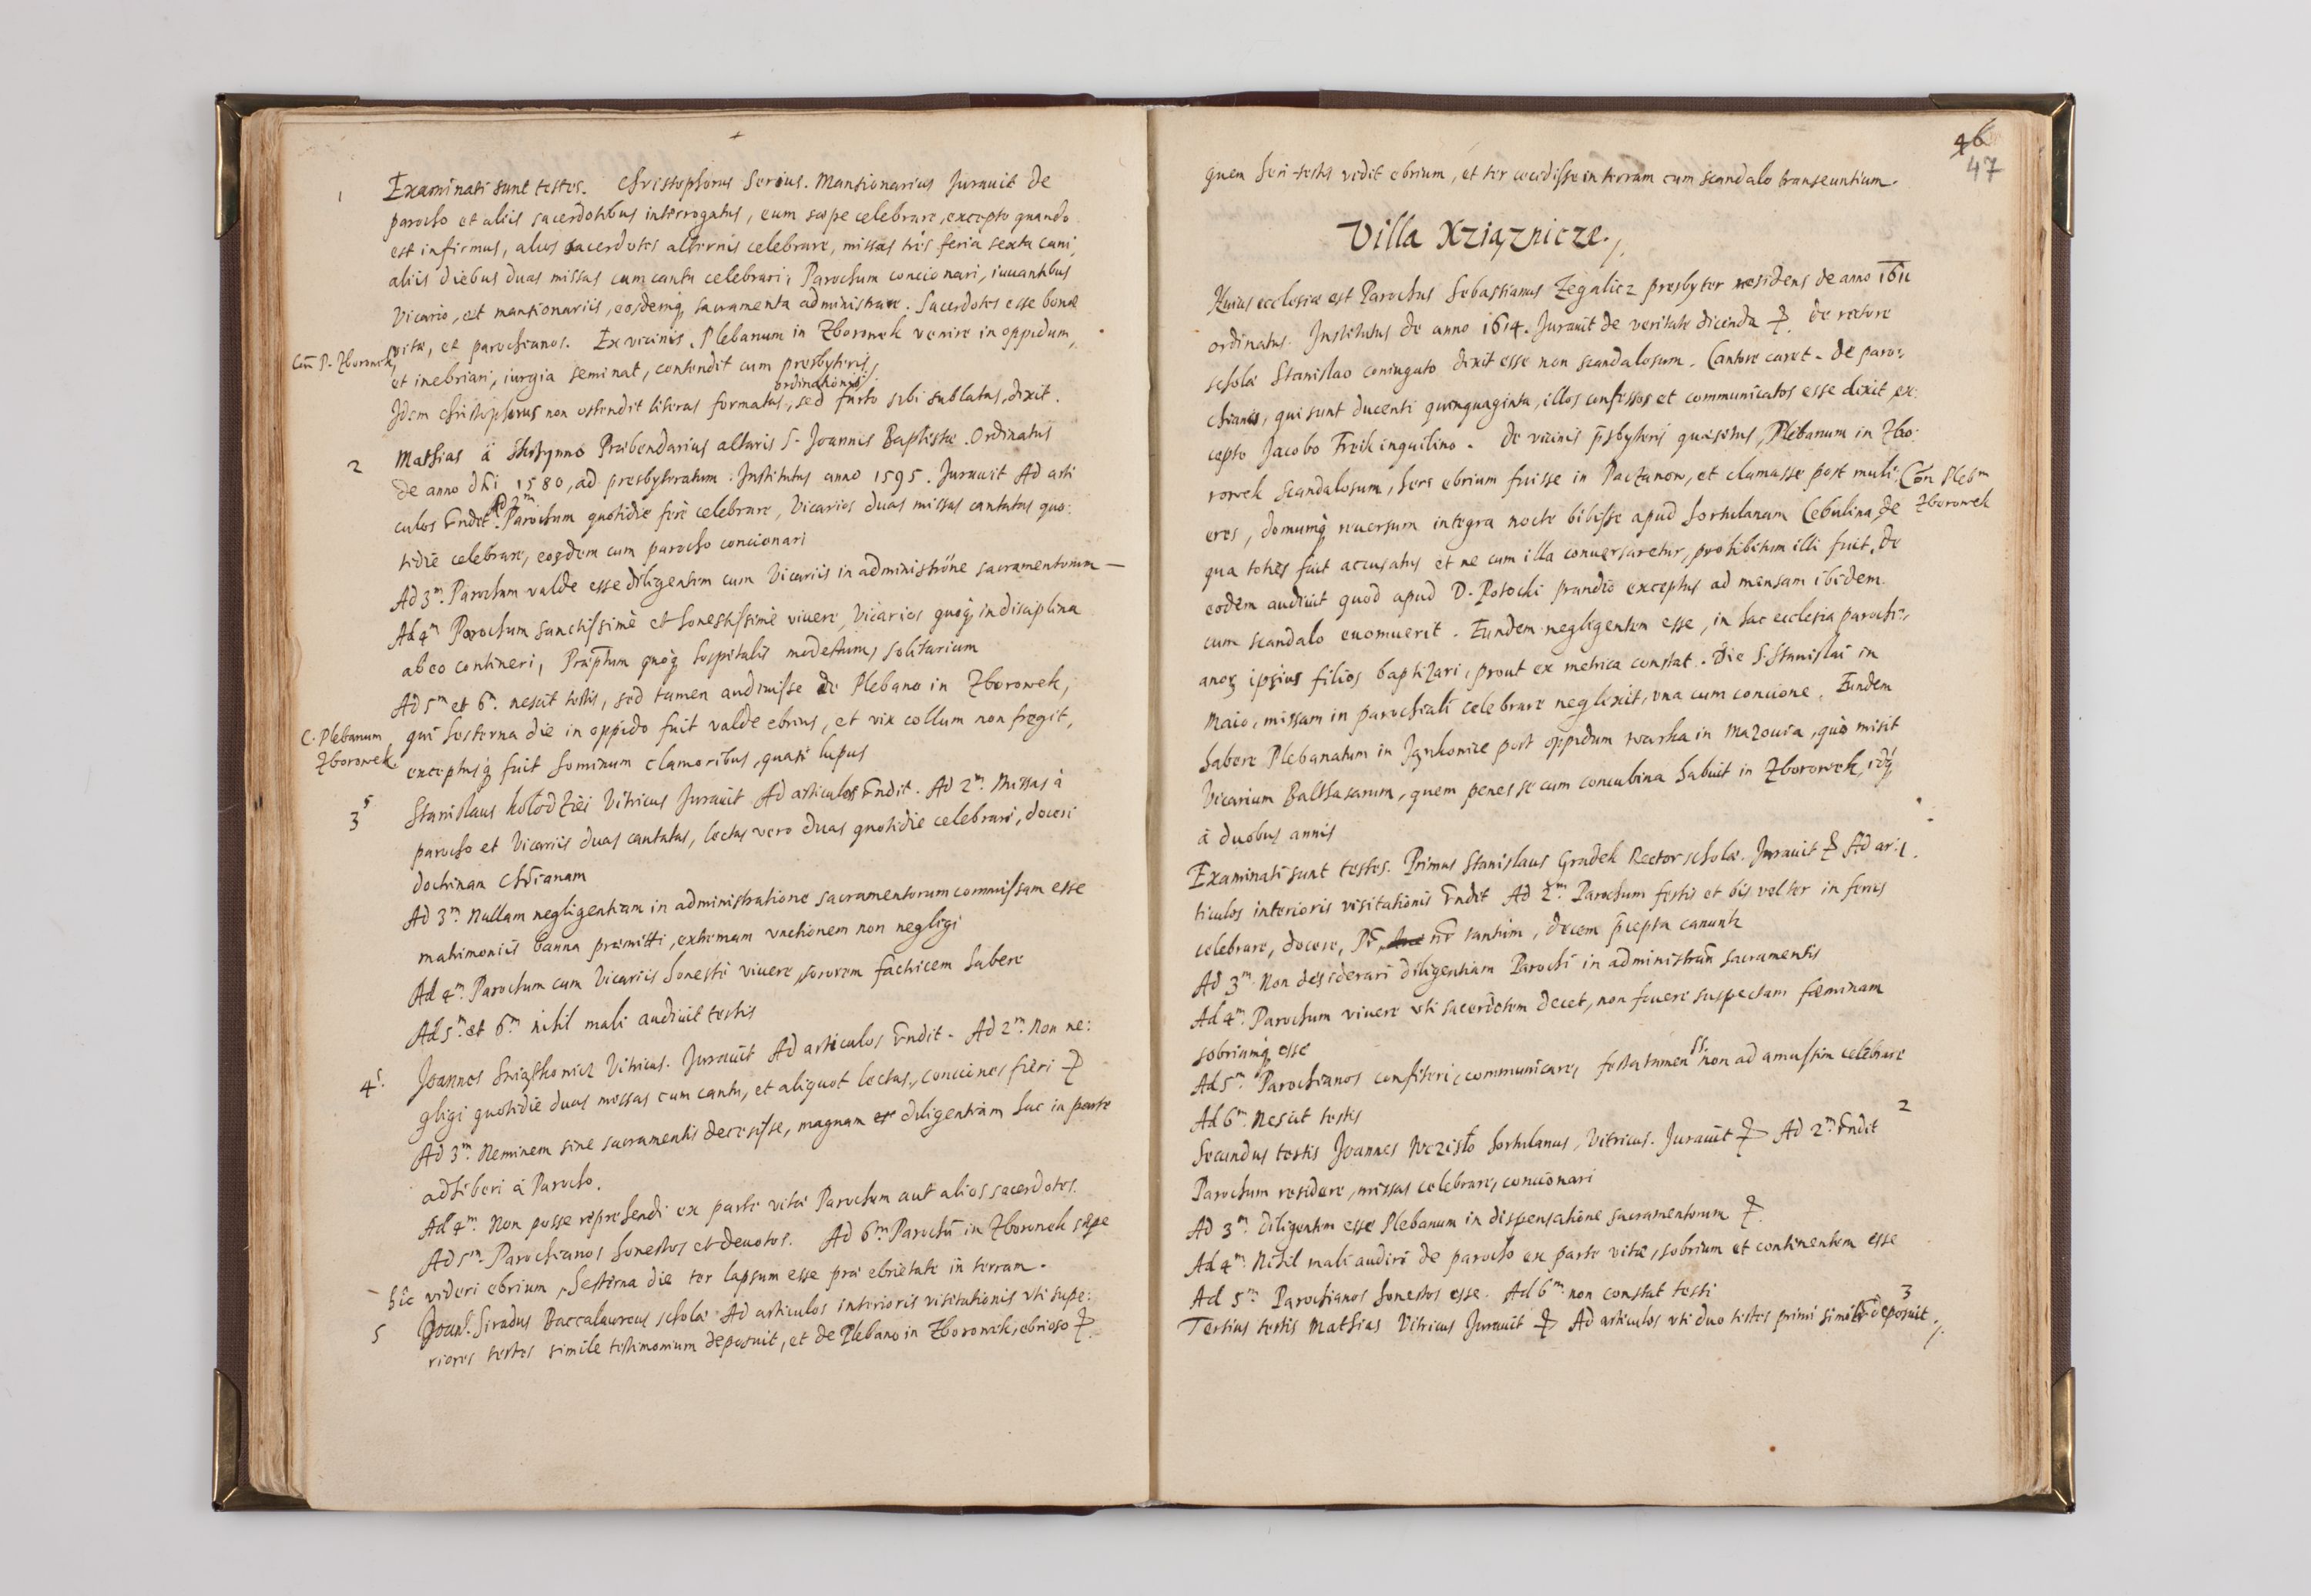 1 Examinati sunt testes. Christophorus Serius. Mansionarius Jurauit de
parocho et aliis sacerdotibus interrogatus, eum sæpe celebrare, excepto quando
est infirmus, alios sacerdotes alternis celebrare, missas tres feria sexta cani
aliis diebus duas missas cum cantu celebrari, Parochum concionari, iuuantibus
Vicario, et mansionariis, eosdemq́ sacramenta administrare. Sacerdotes esse bonæ
vitæ, et parochianos. Ex vicinis, Plebanum in Zborowek venire in oppidum,
Cōn P. Zborowek
et inebriari, iurgia seminat, contendit cum presbyteris
ordinationis
Idem Christophorus non ostendit literas formatas, sed furto sibi sublatas, dixit.
2 Mathias à Præbendarius altaris S. Joannis Baptistæ. Ordinatus
de anno dñi 1580, ad presbyteratum. Institutus anno 1595. Jurauit Ad arti
Ad 2m
culos r̄ndet. Parochum quotidie ferè celebrare, Vicarios duas missas cantatas quo:
tidie celebrare, eosdem cum parocho concionari
Ad 3m. Parochum valde esse diligentem cum Vicariis in administr̄one sacramentorum —
Ad 4m Parochum sanctissimè et honestissimè viuere, Vicarios quoq́ in disciplina
ab eo contineri, Præptum quoq́ hospitalis modestum, solitarium
Ad 5m et 6m. nescit testis, sed tamen audiuisse de Plebano in Zborowek,
C. Plebanum
Zborowek.
qui hesterna die in oppido fuit valde ebrius, et vix collum non fregit,
exceptusq́ fuit hominum clamoribus, quasi lupus
3s Stanislaus kolodziei Vitricus Jurauit Ad articulos r̄ndit. Ad 2m. Missas à
parocho et Vicariis duas cantatas, lectas vero duas quotidie celebrari, doceri
doctrinam chr̄ianam
Ad 3m. Nullam negligentiam in administratione sacramentorum commissam esse
matrimoniis banna præmitti, extremam vnctionem non negligi
Ad 4m. Parochum cum Vicariis honestè viuere, sororem habere
Ad 5m. et 6m nihil mali audiuit testis
4s. Joannes Vitricus. Jurauit Ad articulos r̄ndit. Ad 2m. Non ne:
gligi quotidie duas missas cum cantu, et aliquot lectas, conciones fieri
Ad 3m. Neminem sine sacramentis decessisse, magnam diligentiam hac in parte
adhiberi à Parocho.
Ad 4m. Non posse reprehendi ex parte vitæ Parochum aut alios sacerdotes.
Ad 5m. Parochianos honestos et deuotos. Ad 6m. Parochū in Zborowek sæpe
hîc videri ebrium, hesterna die ter lapsum esse præ ebrietate in terram.
5 Joan̄es Siradus Baccalaureus scholæ Ad articulos interioris visitationis vti supe:
riores testes simile testimonium deposuit, et de Plebano in Zborowek, ebrioso
46
47
quem heri testis vidit ebrium, et ter cecidisse in terram cum scandalo transeuntium.
Villa Xziąznicze.
Huius ecclesiæ est Parochus Sebastianus Zegalicz presbyter residens de anno 1611
ordinatus. Institutus de anno 1614. Jurauit de veritate dicenda. de rectore
scholæ Stanislao coniugato dixit esse non scandalosum. Cantore caret. de paro:
chianis, qui sunt ducenti quinquaginta, illos confessos et communicatos esse dixit ex:
cepto Jacobo Freik inquilino. De vicinis p̄sbyteris quæsitus, Plebanum in Zbo:
rowek scandalosum, here ebrium fuisse in Paczanow, et clamasse post muli:
Cōn Plebm
Zborowek
eres, domumq́ reuersum integra nocte bibisse apud hortulanam Cebulina, de
qua toties fuit accusatus et ne cum illa conuersaretur, prohibitum illi fuit. De
eodem audiuit quod apud D. Potocki prandio exceptus ad mensam ibidem
cum scandalo euomuerit. Eundem negligentem esse, in hac ecclesia parochi:
anos ipsius filios baptizari, prout ex metrica constat. Die S. Stanislai in
Maio, missam in parochiali celebrare neglexit, vna cum concione. Eundem
habere Plebanatum in post oppidum warka in Mazouia, quò misit
Vicarium Balthasarum, quem penes se cum concubina habuit in Zborowek, idq́
à duobus annis
Examinati sunt testes. Primus Stanislaus Gradek Rector scholæ. Jurauit Ad ar: 1.
ticulos interioris visitationis r̄ndit Ad 2m. Parochum festis et bis vel ter in feriis
celebrare, docere, Pr̄ nr̄ tantum, decem p̄cepta canunt
Ad 3m. Non desiderari diligentiam Parochi in administran̄ sacramentis
Ad 4m. Parochum viuere vti sacerdotem decet, non fouere suspectam fœminam
sobriumq́ esse
Ad 5m. Parochianos confiteri, communicare, festa tamen non ad amussim celebrare
Ad 6m. Nescit testis
2
Secundus testis Joannes hortulanus, Vitricus. Jurauit Ad 2m. r̄ndit
Parochum residere, missas celebrare, concionari
Ad 3m. diligentem esse Plebanum in dispensatione sacramentorum
Ad 4m. Nihil mali audiri de parocho ex parte vitæ, sobrium et continentem esse
Ad 5m. Parochianos honestos esse. Ad 6m. non constat testi
3
Tertius testis Mathias Vitricus Jurauit Ad articulos vti duo testes primi similr̄ deposuit.